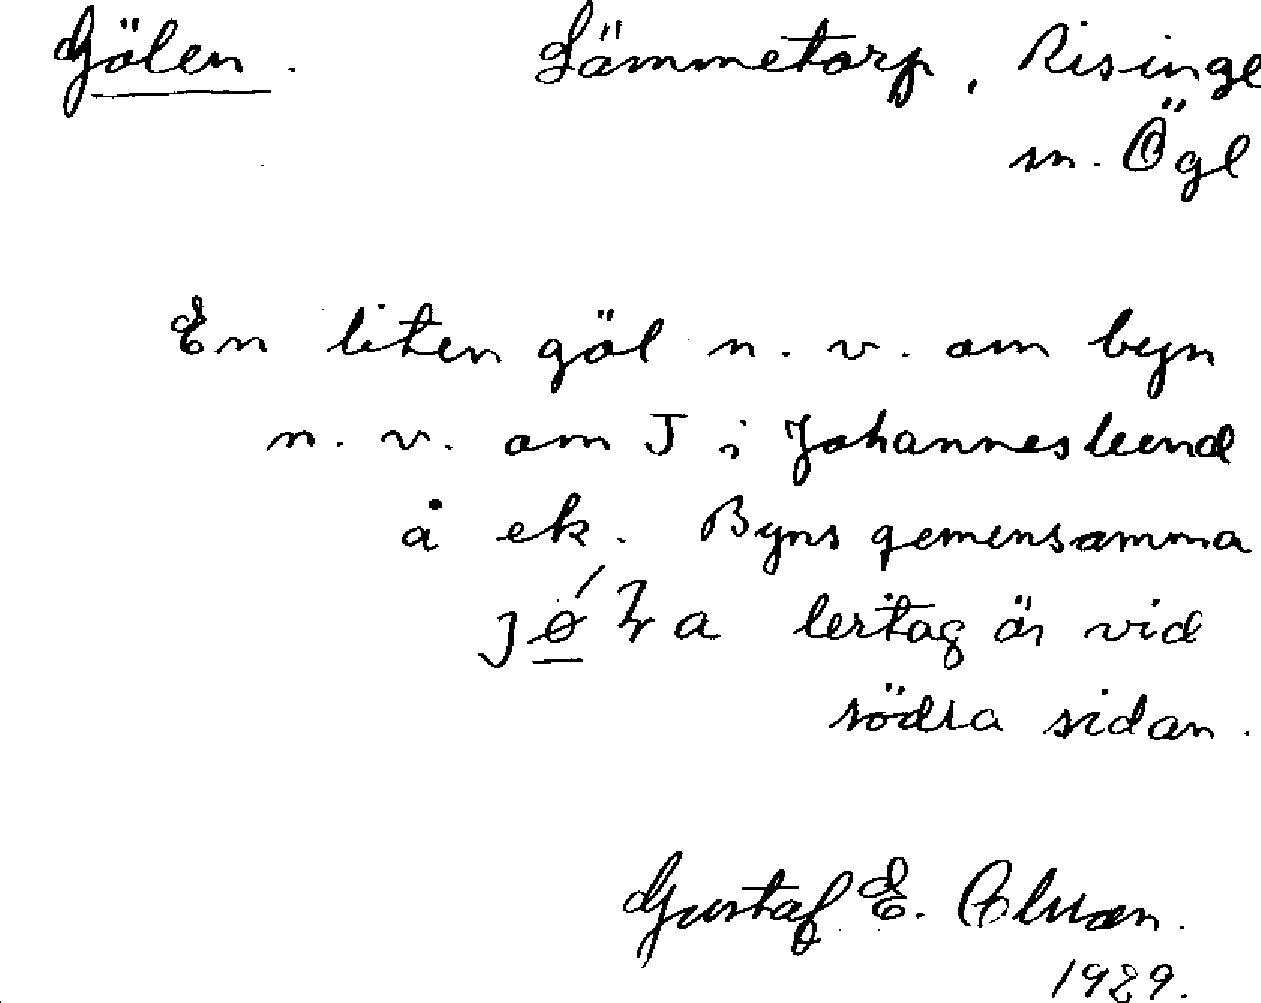 Gölen. Lämmetorp, Risinge
sn. Ögl
En liten göl n. v. om byn
n. v. om J i Johanneslund
å ek. Byns gemensamma
lertag är vid
södra sidan.
Gustaf E. Olsson.
1929.